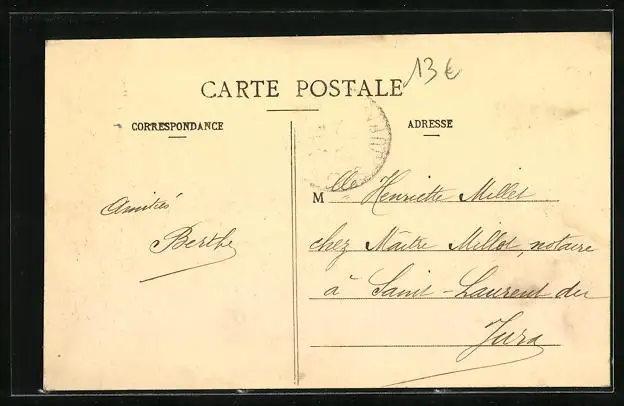 13€
CARTE POSTALE
CORRESPONDANCE
ADRESSE
Amitiés
Berthe
Mlle Henriette Millet
chez Maître Millot, notaire
à Saint-Laurent du
Jura